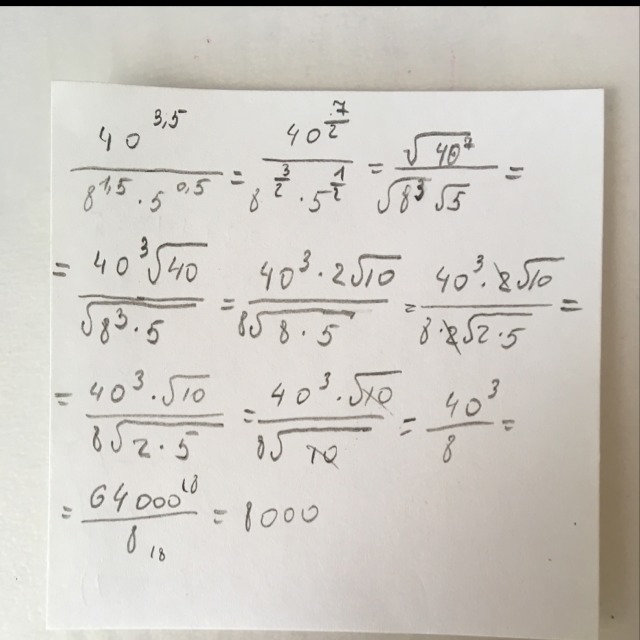 40^{3,5} / (8^{1,5} · 5^{0,5}) = 40^{7/2} / (8^{3/2} · 5^{1/2}) = √(40^7) / (√(8^3) √5) =
= 40^3 √40 / √(8^3 · 5) = 40^3 · 2√10 / (8√(8 · 5)) = 40^3 · 2√10 / (8 · 2√(2 · 5)) =
= 40^3 · √10 / (8√(2 · 5)) = 40^3 · √10 / (8√10) = 40^3 / 8 =
= 64000 |:8 / 8 |:8 = 8000